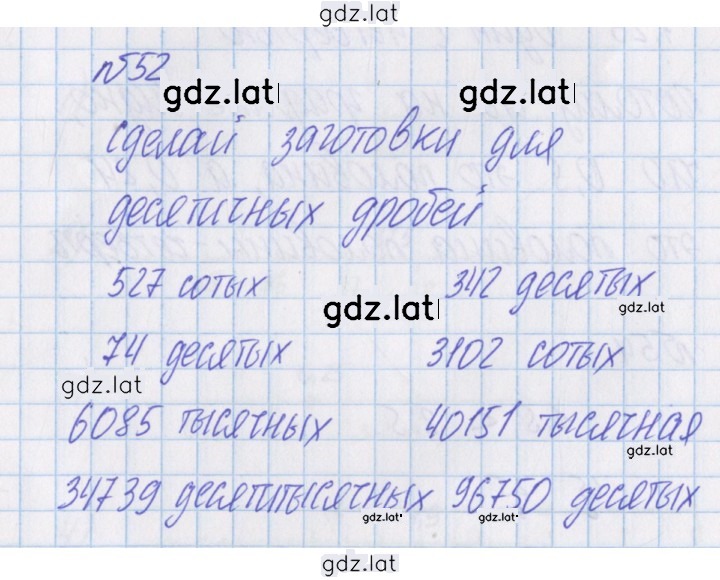 gdz.lat
№52
gdz.lat gdz.lat
сделай заготовки для
десятичных дробей
527 сотых 342 десятых
gdz.lat gdz.lat
74 десятых 3102 сотых
gdz.lat
6085 тысячных 40151 тысячная
gdz.lat
34739 десятитысячных 96750 десятых
gdz.lat gdz.lat
gdz.lat